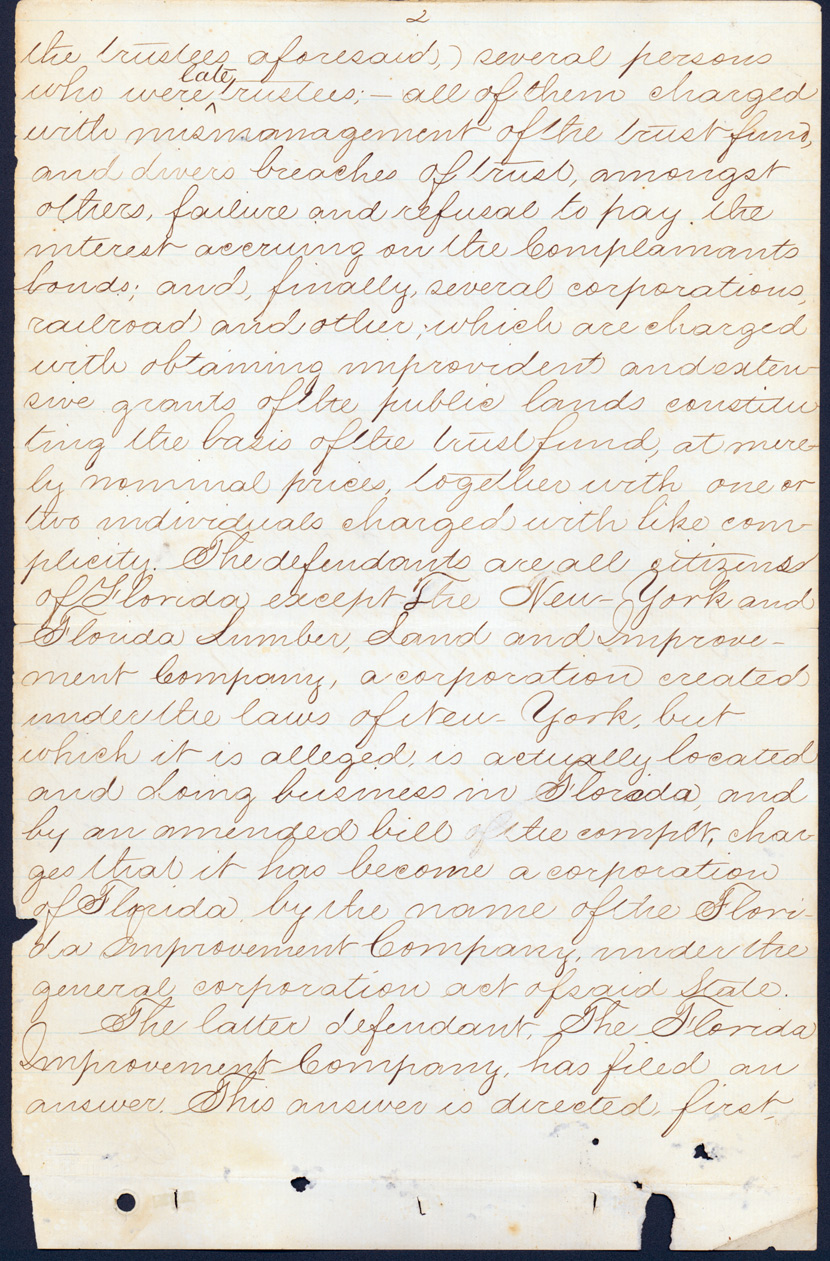 2
the trustees aforesaid,) several persons
late
who were ^ trustees; – all of them charged
with mismanagement of the trust fund,
and divers breaches of trust, amongst
others, failure and refusal to pay the
interest accruing on the Complainants
bonds; and, finally, several corporations,
railroad and other, which are charged
with obtaining improvident and exten-
sive grants of the public lands constitu-
ting the basis of the trust fund, at mere-
ly nominal prices, together with one or
two individuals charged with like com-
plicity. The defendants are all citizens
of Florida except The New-York and
Florida Lumber, Land and Improve-
ment Company, a corporation created
under the laws of New-York, but
which it is alleged, is actually located
and doing business in Florida, and
by an amended bill of the complt, char-
ges that it has become a corporation
of Florida by the name of the Flori-
da Improvement Company, under the
general corporation act of said State.
The latter defendant, The Florida
Improvement Company, has filed an
answer. This answer is directed, first,